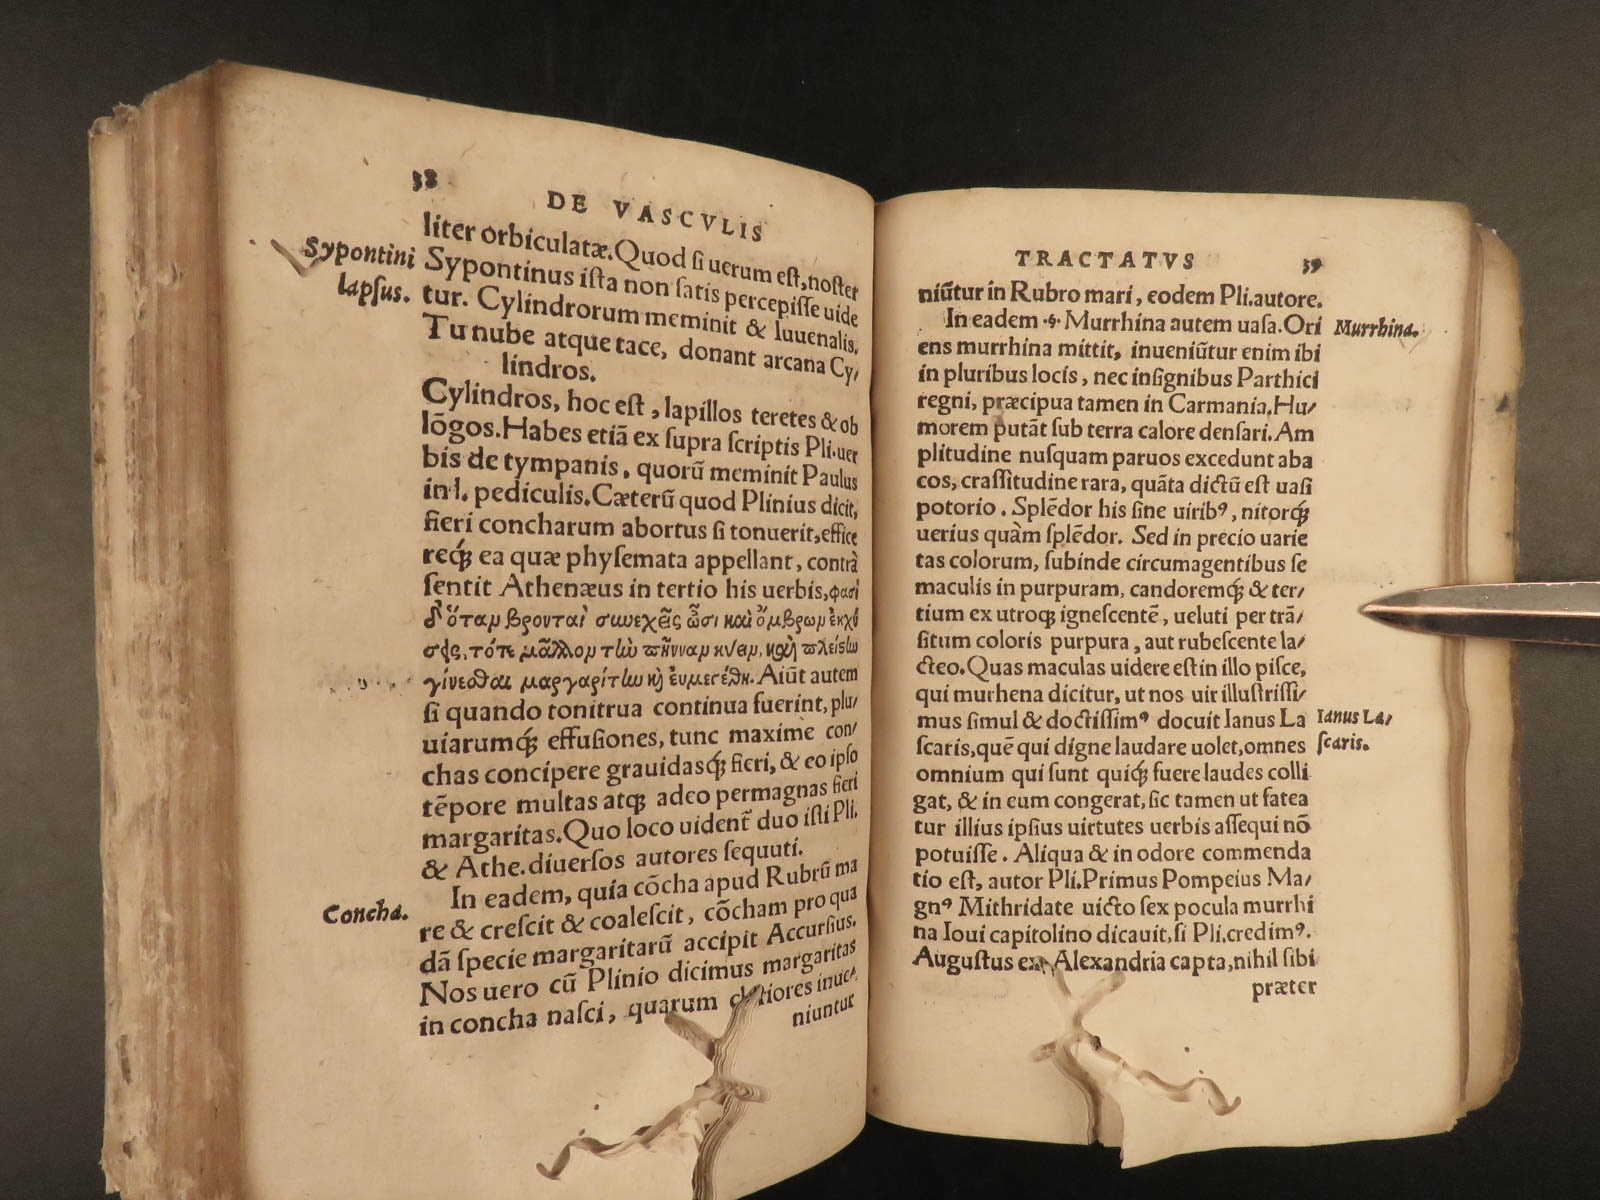 38
DE VASCVLIS
liter orbiculatæ. Quod ſi uerum eſt, noſter
Sypontini
Sypontinus iſta non ſatis percepiſſe uide
lapſus.
tur. Cylindrorum meminit & Iuuenalis.
Tu nube atque tace, donant arcana Cy/
lindros.
Cylindros, hoc eſt, lapillos teretes & ob
lõgos. Habes etiã ex ſupra ſcriptis Pli. uer
bis de tympanis, quorũ meminit Paulus
in l. pediculis. Cæterũ quod Plinius dicit,
fieri concharum abortus ſi tonuerit, effice
req́; ea quæ phyſemata appellant, contrà
ſentit Athenæus in tertio his uerbis, φασὶ
δ' ὅταν βρονταὶ συνεχεῖς ὦσι καὶ ὄμβρων ἐκχύ
σεις, τότε μᾶλλον τὴν πίνναν κύειν, καὶ πλείστην
γίνεσθαι μαργαρίτην καὶ εὐμεγέθη. Aiũt autem
ſi quando tonitrua continua fuerint, plu/
uiarumq́; effuſiones, tunc maxime con/
chas concipere grauidasq́; fieri, & eo ipſo
tẽpore multas atq; adeo permagnas fieri
margaritas. Quo loco uident̃ duo iſti Pli.
& Athe. diuerſos autores ſequuti.
In eadem, quia cõcha apud Rubrũ ma
Concha.
re & creſcit & coaleſcit, cõcham pro qua
dã ſpecie margaritarũ accipit Accurſius.
Nos uero cũ Plinio dicimus margaritas
in concha naſci, quarum inue/
niuntur
TRACTATVS
39
niũtur in Rubro mari, eodem Pli. autore.
In eadem .§. Murrhina autem uaſa. Ori
Murrhina.
ens murrhina mittit, inueniũtur enim ibi
in pluribus locis, nec inſignibus Parthici
regni, præcipua tamen in Carmania. Hu/
morem putãt ſub terra calore denſari. Am
plitudine nuſquam paruos excedunt aba
cos, craſſitudine rara, quãta dictũ eſt uaſi
potorio. Splẽdor his ſine uiribꝰ, nitorq́;
uerius quàm ſplẽdor. Sed in precio uarie
tas colorum, ſubinde circumagentibus ſe
maculis in purpuram, candoremq́; & ter/
tium ex utroq; igneſcentẽ, ueluti per trã/
ſitum coloris purpura, aut rubeſcente la/
cteo. Quas maculas uidere eſt in illo piſce,
qui murhena dicitur, ut nos uir illuſtriſſi/
mus ſimul & doctiſſimꝰ docuit Ianus La
Ianus La/
ſcaris, quẽ qui digne laudare uolet, omnes
ſcaris.
omnium qui ſunt quiq́; fuere laudes colli
gat, & in eum congerat, ſic tamen ut fatea
tur illius ipſius uirtutes uerbis aſſequi nõ
potuiſſe. Aliqua & in odore commenda
tio eſt, autor Pli. Primus Pompeius Ma/
gnꝰ Mithridate uicto ſex pocula murrhi
na Ioui capitolino dicauit, ſi Pli. credimꝰ.
Auguſtus ex Alexandria capta, nihil ſibi
præter